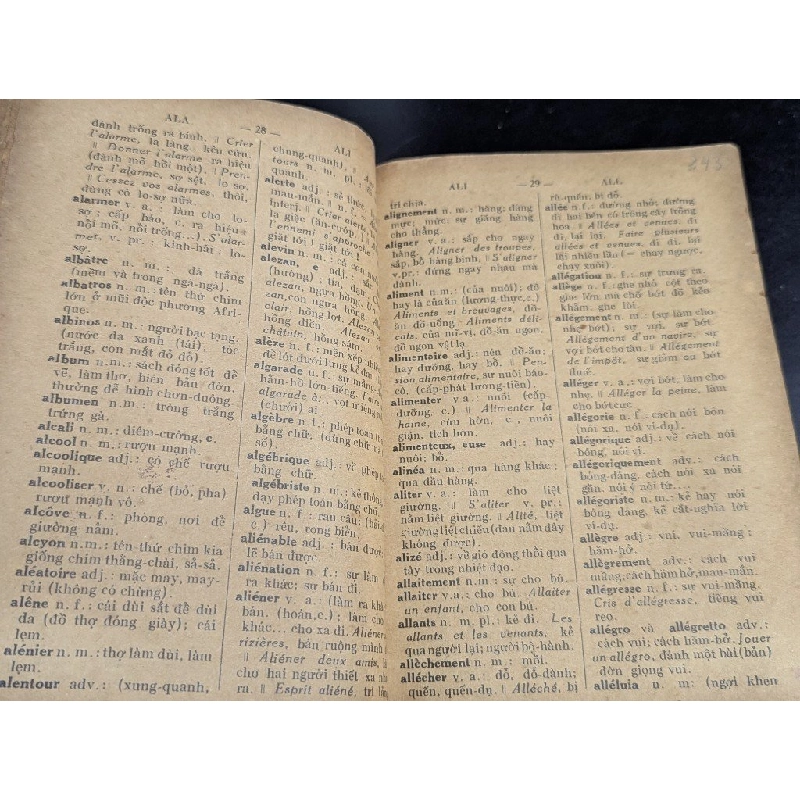 ALA
— 28 —
ALI
đánh trống ra binh. ‖ Crier
l'alarme, la làng, kêu cứu.
‖ Donner l'alarme ra hiệu
(đánh mõ hồi một). ‖
dre l'alarme, sợ sệt, lo sợ.
‖ Cessez vos alarmes, thôi,
đừng có lo-sợ nữa.
alarmer v. a. : làm cho lo-
sợ : cấp báo, c. ra hiệu
nổi mõ, nổi trống...). S'alar-
mer, v. pr. : kinh-hãi lo-
sợ.
albâtre n. m. : đá trắng
(mềm và trong ngà-ngà).
albatros n. m : tên thứ chim
lớn ở mũi độc phương Afri-
que.
albinos n. m. : người bạc tạng,
(nước da xanh (tái), tóc
trắng, con mắt đỏ đỏ).
album n. m. : sách đóng tốt để
vẽ, làm thơ, biên bản đờn,
thường để hình chưn-dung.
albumen n. m. : tròng trắng
trứng gà.
alcali n. m. : diêm-cường, c.
alcool n. m. : rượu mạnh.
alcoolique adj. : có chế rượu
mạnh.
alcooliser v. a. : chế (bỏ, pha)
rượu mạnh vô.
alcôve n. f. : phòng, nơi để
giường nằm.
alcyon n. m. : tên thứ chim kia
giống chim thằng-chài, sả-sả.
aléatoire adj. : mặc may, may-
rủi (không có chừng).
alêne n. f. : cái dùi sắt để dùi
da (đồ thợ đóng giày); cái
lẹm.
alénier n. m. : thợ làm dùi, làm
lẹm.
alentour adv. : (xung-quanh,
chung-quanh).
tours n. m. pl. :
quanh.
alerte adj. :
mau-mắn.
interj. ‖ Crier alerte
la giặc
l'ennemi s'approche
giặt tới! giặt tới!
alevin n. m. : cá
alezan, e adj. :
(hường) : tin, đạn.
alezan, ngựa hồng.
zan, con ngựa hồng.
clair, hồng lợt. Alezan
hồng điển
châtain, hồng sậm.
alèze n. f. : mền xếp
để lót dưới lưng kẻ đau.
algarade n. f. : sự mắng,
hầm-hồ lớn-tiếng. Faire
algarade à...
(chưởi) ai
algèbre n. f. : phép toán
bằng chữ, (cùng chữ
số).
algébrique adj. : về phép
bằng chữ.
algébriste n. m. : kẻ thông,
dạy phép toán bằng chữ.
algue n. f : rau câu;
c.) rêu, rong biển.
aliénable adj. : bán được,
lẽ bán được.
aliénation n. f. : sự làm
ra khác; sự bán đi.
aliéner v. a. : (làm ra khác
bán. (hoán, c.) : làm cho
khác... cho xa đi. Aliéner
rizières, bán ruộng mình
‖ Aliéner deux amis, làm
cho hai người thiết xa nhau
ra. ‖ Esprit aliéné, trí
ALI
— 29 —
ALL
243
trí chia.
alignement n. m. : hàng; đàng
mực; mức; sự giăng hàng
cho thẳng.
aligner v. a. : sắp cho ngay
hàng. Aligner des troupes,
sắp, bố hàng binh. ‖ S'aligner
v. pr. : đứng ngay nhau mà
đánh.
aliment n. m. : (của nuôi); đồ
hay là của ăn (lương thực, c.)
Aliments et breuvages, đồ-ăn
đồ uống. Aliments déli-
cats, của mĩ-vị, đồ-ăn ngon,
đồ ngon vật lạ.
alimentaire adj. : nên đồ-ăn;
hay dưỡng, hay bổ. ‖ Pen-
sion alimentaire, sự nuôi báo-
cô, (cấp-phát lương-tiền).
alimenter v. a. : nuôi (cấp
dưỡng, c.) ‖ Alimenter la
haine, cừu hờn, c., nuôi
giận, tích hờn.
alimenteux, euse adj. : hay
nuôi; bổ.
alinéa n. m. : qua hàng khác;
qua đầu hàng.
aliter v. a. : làm cho liệt
giường. ‖ S'aliter v. pr.
nằm liệt giường. ‖ Alité, liệt
giường liệt chiếu (đau nằm dậy
không được)
alizé adj. : về gió đông thổi qua
tây trong nhiệt đạo.
allaitement n. m : sự cho bú.
allaiter v. a. : cho bú. Allaiter
un enfant, cho con bú.
allants n. m. pl. : kẻ đi. Les
allants et les venants, kẻ
qua người lại; người bộ-hành.
allèchement n. m. : mồi.
allécher v. a. : dỗ, dỗ-dành;
quến, quến-dụ. ‖ Alléché, bị
rù-quến, bị dỗ.
allée n. f. : đường nhỏ, đường
đi hai bên có trồng cây trồng
hoa. ‖ Allées et venues, đi
đi, lại lại. Faire plusieurs
allées et venues, đi đi, lại
lại nhiều lần. (chạy ngược,
chạy xuôi).
allégation n. f. : sự trưng ra.
allège n. f. : ghe nhỏ cột theo
ghe lớn mà chở bớt đồ kẻo
khẳm, ghe lồi.
allégement n. m. : (sự làm cho-
nhẹ bớt), sự vợi, sự bớt.
Allégement d'un navire, sự
vợi bớt cho tàu. Allégement
de l'impôt, sự giảm ou bớt
thuế.
alléger v. a. : vợi bớt, làm cho
nhẹ. ‖ Alléger la peine, làm
cho bớt cực.
allégorie n. f. : cách nói bóng
(nói xa, nói ví-dụ).
allégorique adj. : về cách nói
bóng, nói ví.
allégoriquement adv. : cách
bóng-dáng, cách nói xa nói
gần, nói ví nói từ....
allégoriste n. m. : kẻ hay nói
bóng dáng, kẻ cắt-nghĩa lời
ví-dụ.
allègre adj. : vui, vui-mắng :
hăm-hở.
allègrement adv. : cách vui
mắng, cách hăm hở, mau-mắn.
allégresse n. f. : sự vui-mắng.
Cris d'allégresse, tiếng vui
reo.
allégro và allégretto adv. :
cách vui; cách hăm-hở. Jouer
un allégro, đánh một bài (bản)
đờn giọng vui.
alléluia n. m : (ngợi khen